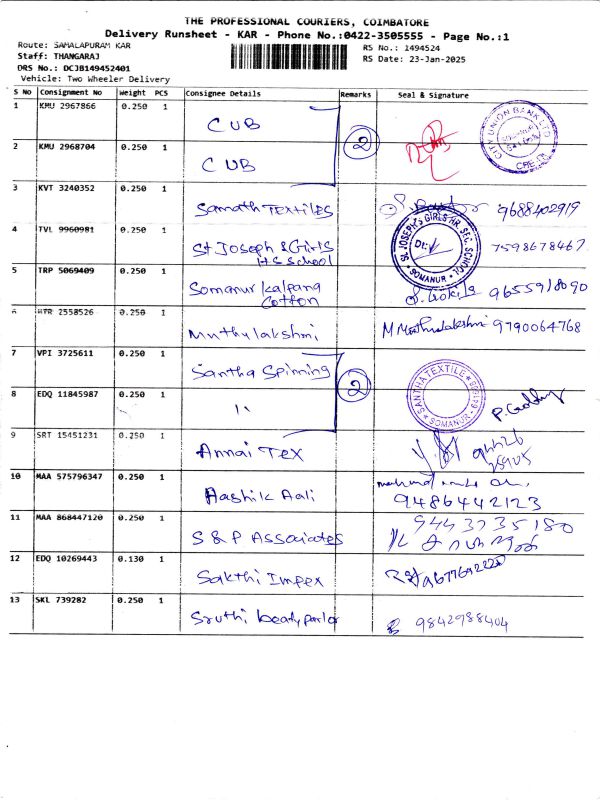 THE PROFESSIONAL COURIERS, COIMBATORE
Delivery Runsheet - KAR - Phone No.:0422-3505555 - Page No.:1
Route: SAMALAPURAM KAR
RS No.: 1494524
Staff: THANGARAJ
RS Date: 23-Jan-2025
DRS No.: DCJB149452401
Vehicle: Two Wheeler Delivery
S No Consignment No Weight PCS Consignee Details Remarks Seal & Signature
1 KMU 2967866 0.250 1 CUB
2
CITY UNION BANK LTD
2 KMU 2968704 0.250 1 CUB
3 KVT 3240352 0.250 1 Samath TEXTILES 9688402919
4 TVL 9960981 0.250 1 St Joseph & Girls
HS School
ST. JOSEPH'S GIRLS HR. SEC. SCHOOL
Dt:
SOMANUR
7598678467
5 TRP 5069409 0.250 1 Somanur kalpana
Cotton
S. Gokila 9655918090
6 HTR 2558526 0.250 1 Muthylakshmi M Muthulakshmi 9790064768
7 VPI 3725611 0.250 1 Santha Spinning
2
SANTHA TEXTILE
SOMANUR
8 EDQ 11845987 0.250 1 "
9 SRT 15451231 0.250 1 Annai Tex
10 MAA 575796347 0.250 1 Aashik Aali
9486442123
11 MAA 868447120 0.250 1 S & P Associates
9443735180
12 EDQ 10269443 0.130 1 Sakthi Impex
13 SKL 739282 0.250 1 Sruthi beatyparlor 9842988404